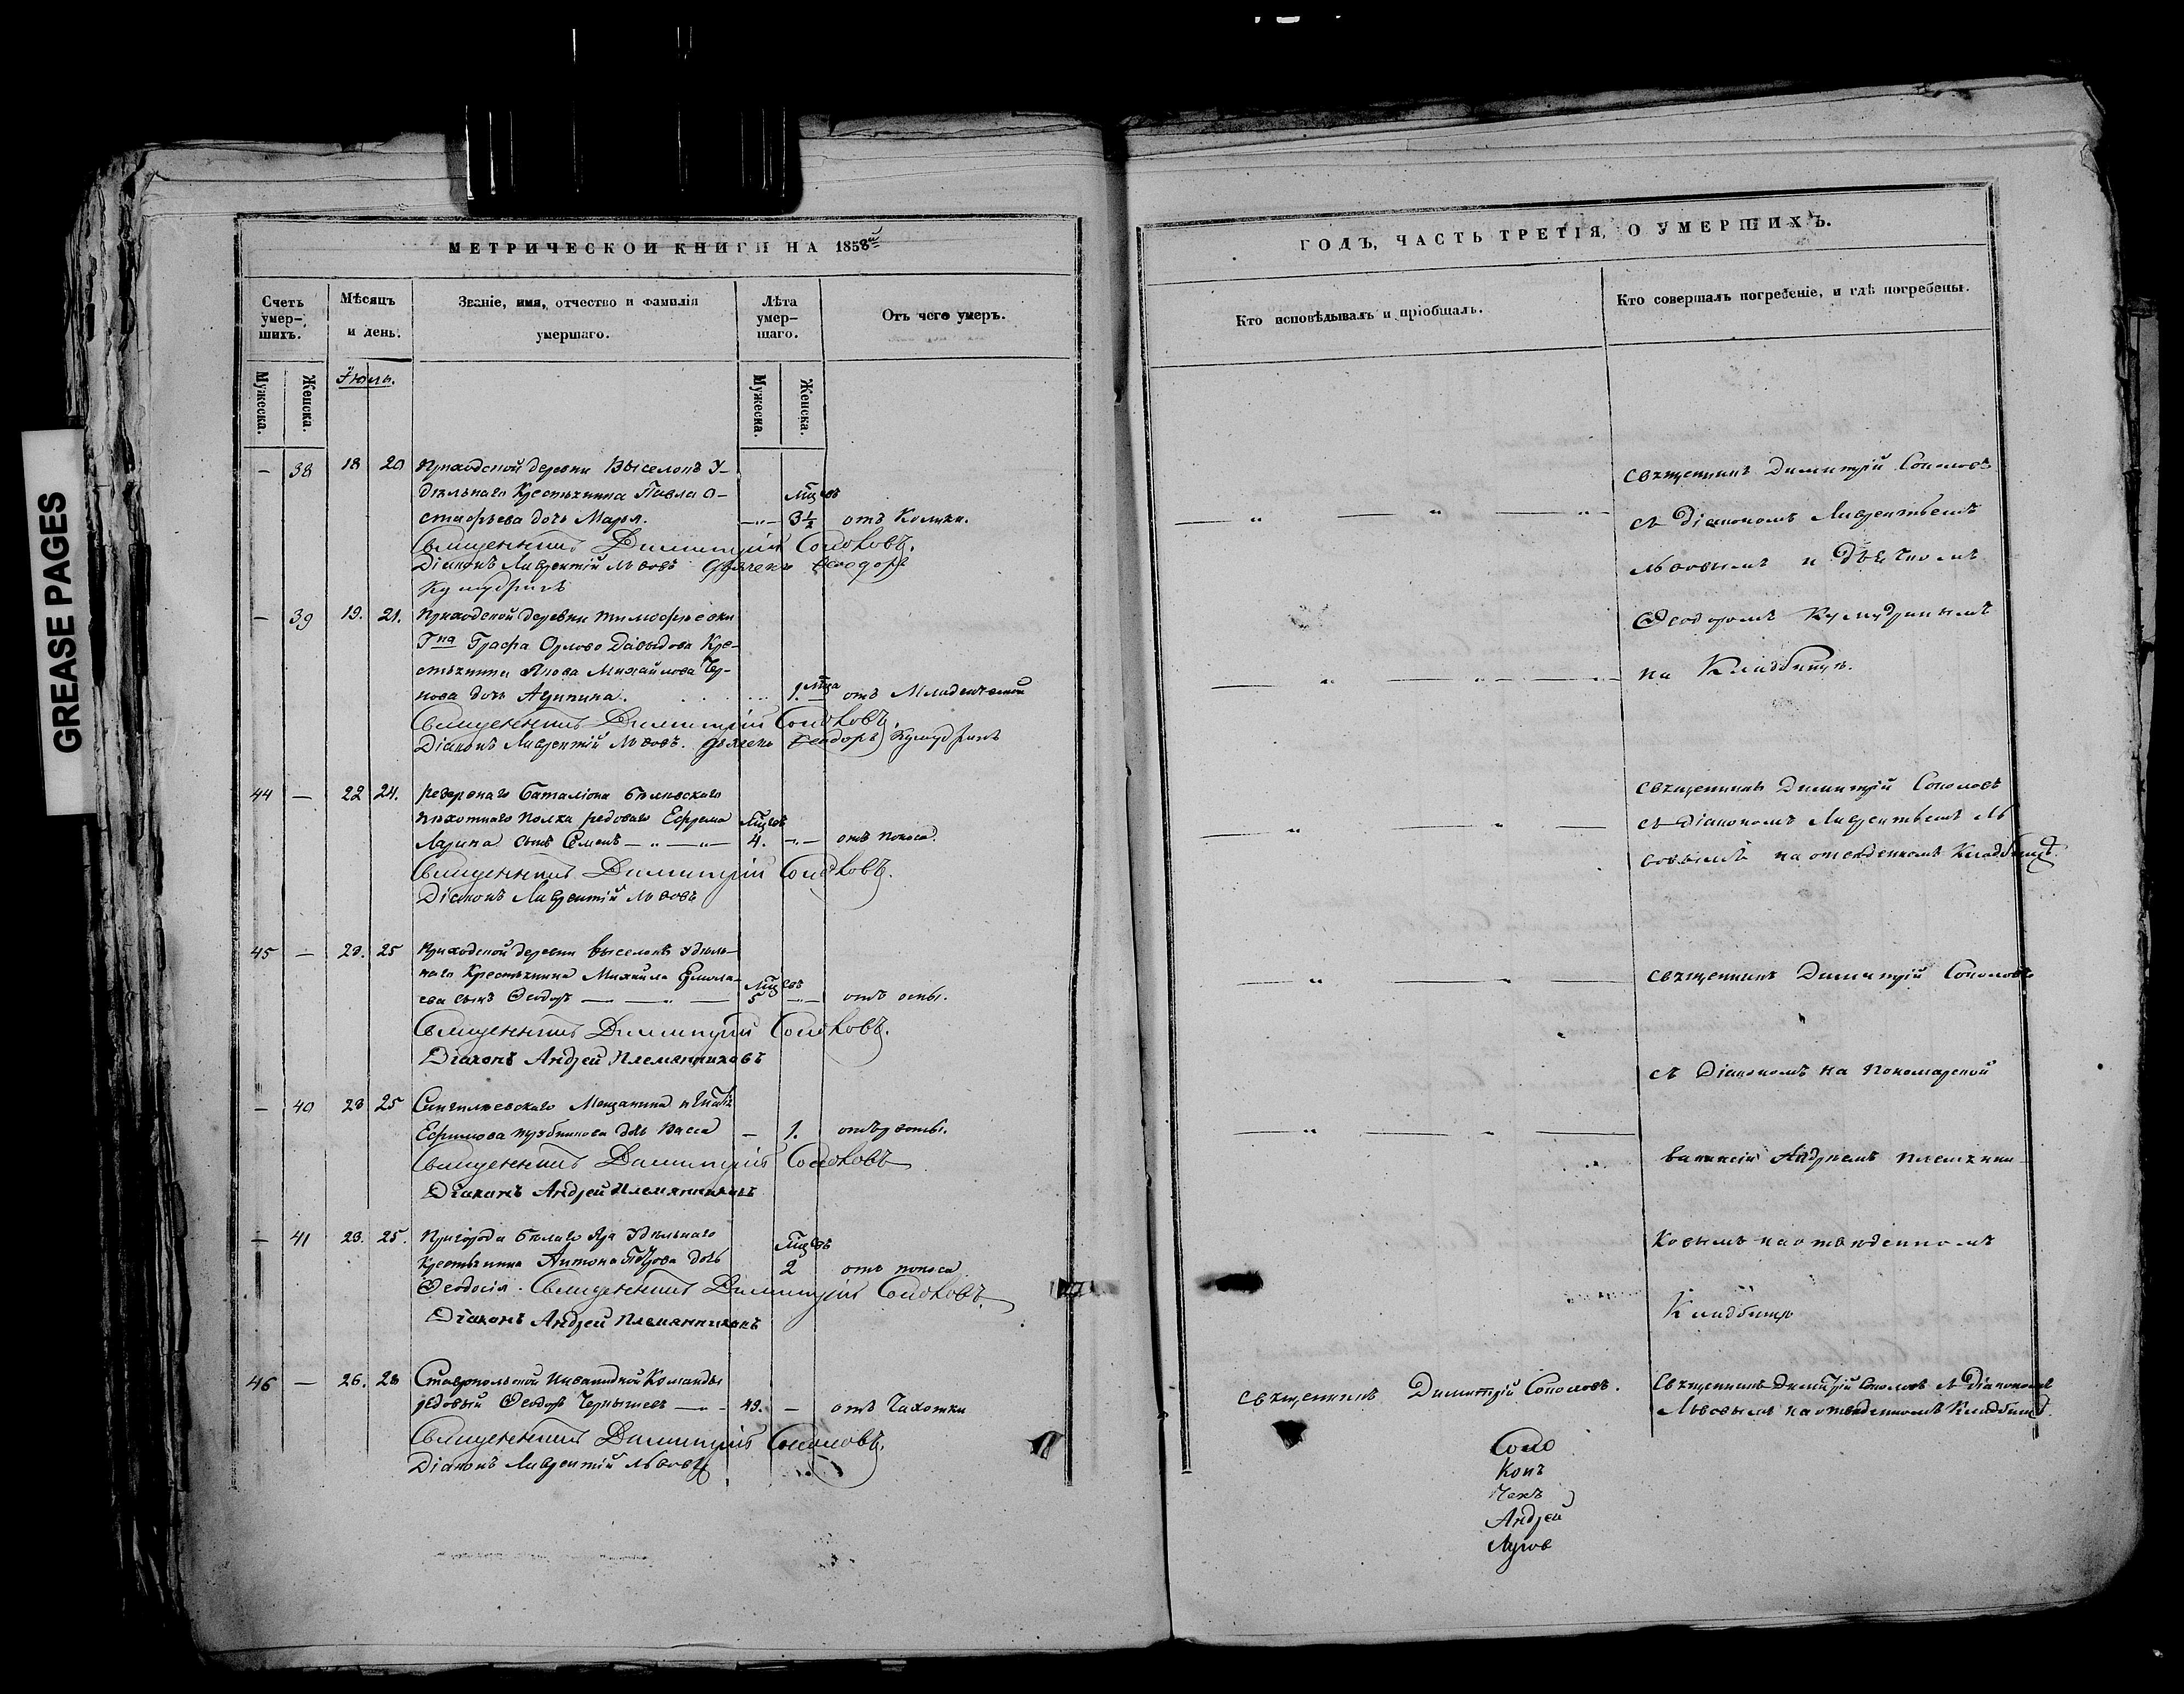 GREASE PAGES
МЕТРИЧЕСКОЙ КНИГИ НА 1858й
Счетъ умер-шихъ.
Мѣсяцъ и день.
Званіе, имя, отчество и фамилія умершаго.
Лѣта умер-шаго.
Отъ чего умеръ.
Мужеска.
Женска.
Іюль.
Мужеска.
Женска.
— 38 18 20 Приходской деревни Выселокъ У-
дѣльнаго Крестьянина Павла О- мцовъ
стафьева дочь Марья. 3½ отъ
Священникъ Димитрій Соколовъ.
Діаконъ Лаврентій Львовъ Дьячекъ Феодоръ
Кумудринъ
— 39 19. 21. Приходской деревни Тимофеевки
Гна Графа Орлова Давыдова Кре-
стьянина Якова Михайлова Чер-
нова дочь 1. мца отъ Младенческой
Священникъ Димитрій Соколовъ.
Діаконъ Лаврентій Львовъ. Дьячекъ Феодоръ Кумудринъ
44 — 22 24. резервнаго Баталіона Бѣлевскаго
пѣхотнаго полка редоваго Ефрема мцовъ
Ларина сынъ Семенъ 4. отъ поноса.
Священникъ Димитрій Соколовъ.
Діаконъ Лаврентій Львовъ
45 — 23. 25 Приходской деревни Выселокъ Удѣль-
наго Крестьянина Михаила Ермола- мцовъ
ева сынъ Феодоръ 5 отъ оспы.
Священникъ Димитрій Соколовъ.
Діаконъ Андрей Племянниковъ
— 40 23 25 Сингилѣевскаго Мещанина
Ефимова дочь Васса — 1. оспы.
Священникъ Димитрій Соколовъ
Діаконъ Андрей Племянниковъ
— 41 23. 25. Пригорода Бѣлаго Яра Удѣльнаго мцовъ
Крестьянина Антона Петрова дочь 2 отъ поноса
Феодосія. Священникъ Димитрій Соколовъ
Діаконъ Андрей Племянниковъ
46 — 26. 28 Ставропольской Инвалидной Команды
редовый Феодоръ Чернышевъ 49. — отъ Чахотки
Священникъ Димитрій Соколовъ.
Діаконъ Лаврентій Львовъ
ГОДЪ, ЧАСТЬ ТРЕТІЯ, О УМЕРШИХЪ.
Кто исповѣдывалъ и пріобщалъ.
Кто совершалъ погребеніе, и гдѣ погребены.
Священникъ Димитрій Соколовъ
съ Діакономъ Лаврентьемъ
Львовымъ и Дьячкомъ
Феодоромъ Кумудринымъ
на Кладбищѣ.
Священникъ Димитрій Соколовъ
съ Діакономъ Лаврентьемъ Ль
вовымъ на отведенномъ Кладбищѣ.
Священникъ Димитрій Соколовъ
съ Діакономъ на Пономарской
вакансіи Андреемъ Племянни-
ковымъ на отведенномъ
Кладбищѣ
Священникъ Димитрій Соколовъ.
Священникъ Димитрій Соколовъ съ Діакономъ
Львовымъ на отведенномъ Кладбищѣ.
Соко
Конъ
Андрей